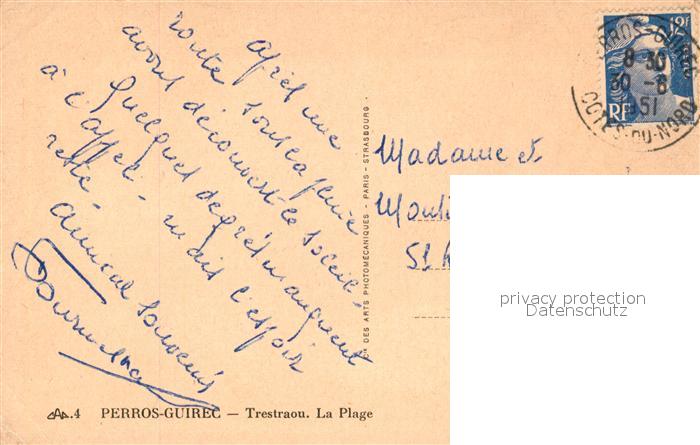 après une
route sous la pluie
avons découvert le soleil -
Quelques degrés manquent
à l'appel - mais l'espoir
reste -
amical souvenir
Madame et
St
12F
RF
PERROS-GUIREC
8 30
30 -6
1951
COTES-DU-NORD
CIE DES ARTS PHOTOMÉCANIQUES - PARIS - STRASBOURG -
privacy protection
Datenschutz
CAP .4 PERROS-GUIREC — Trestraou. La Plage